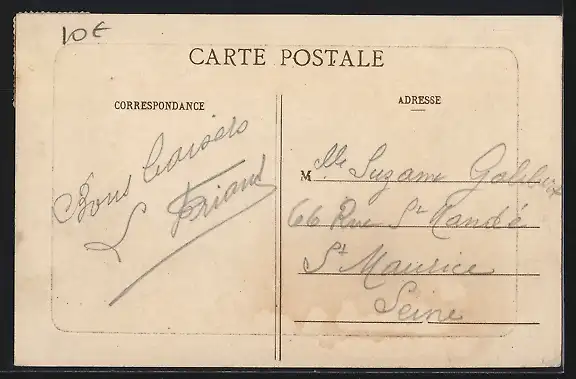 10€
CARTE POSTALE
CORRESPONDANCE
ADRESSE
Bons baisers
L Briand
Mlle Suzanne
66 Rue St Mandé
St Maurice
Seine